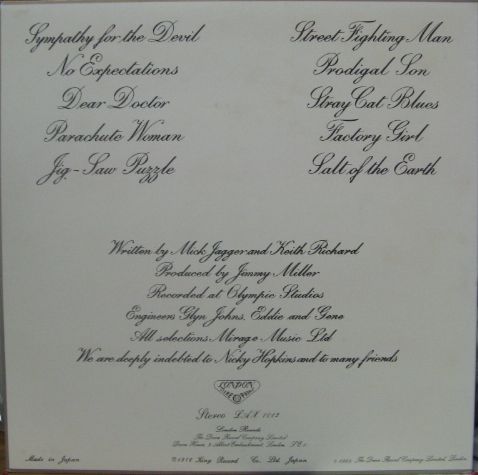 Sympathy for the Devil
No Expectations
Dear Doctor
Parachute Woman
Jig-Saw Puzzle
Street Fighting Man
Prodigal Son
Stray Cat Blues
Factory Girl
Salt of the Earth
Written by Mick Jagger and Keith Richard
Produced by Jimmy Miller
Recorded at Olympic Studios
Engineers Glyn Johns, Eddie and Gene
All selections Mirage Music Ltd
We are deeply indebted to Nicky Hopkins and to many friends
LONDON
Stereo LAX 1012
London Records
The Decca Record Company Limited
Decca House, 9 Albert Embankment, London, S.E.1
Made in Japan
King Record Co. Ltd. Japan
The Decca Record Company Limited, London